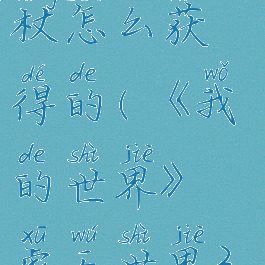 杖怎么获
dé de wǒ
得的(《我
de shì jiè
的世界》
xū wú shì jiè
世界